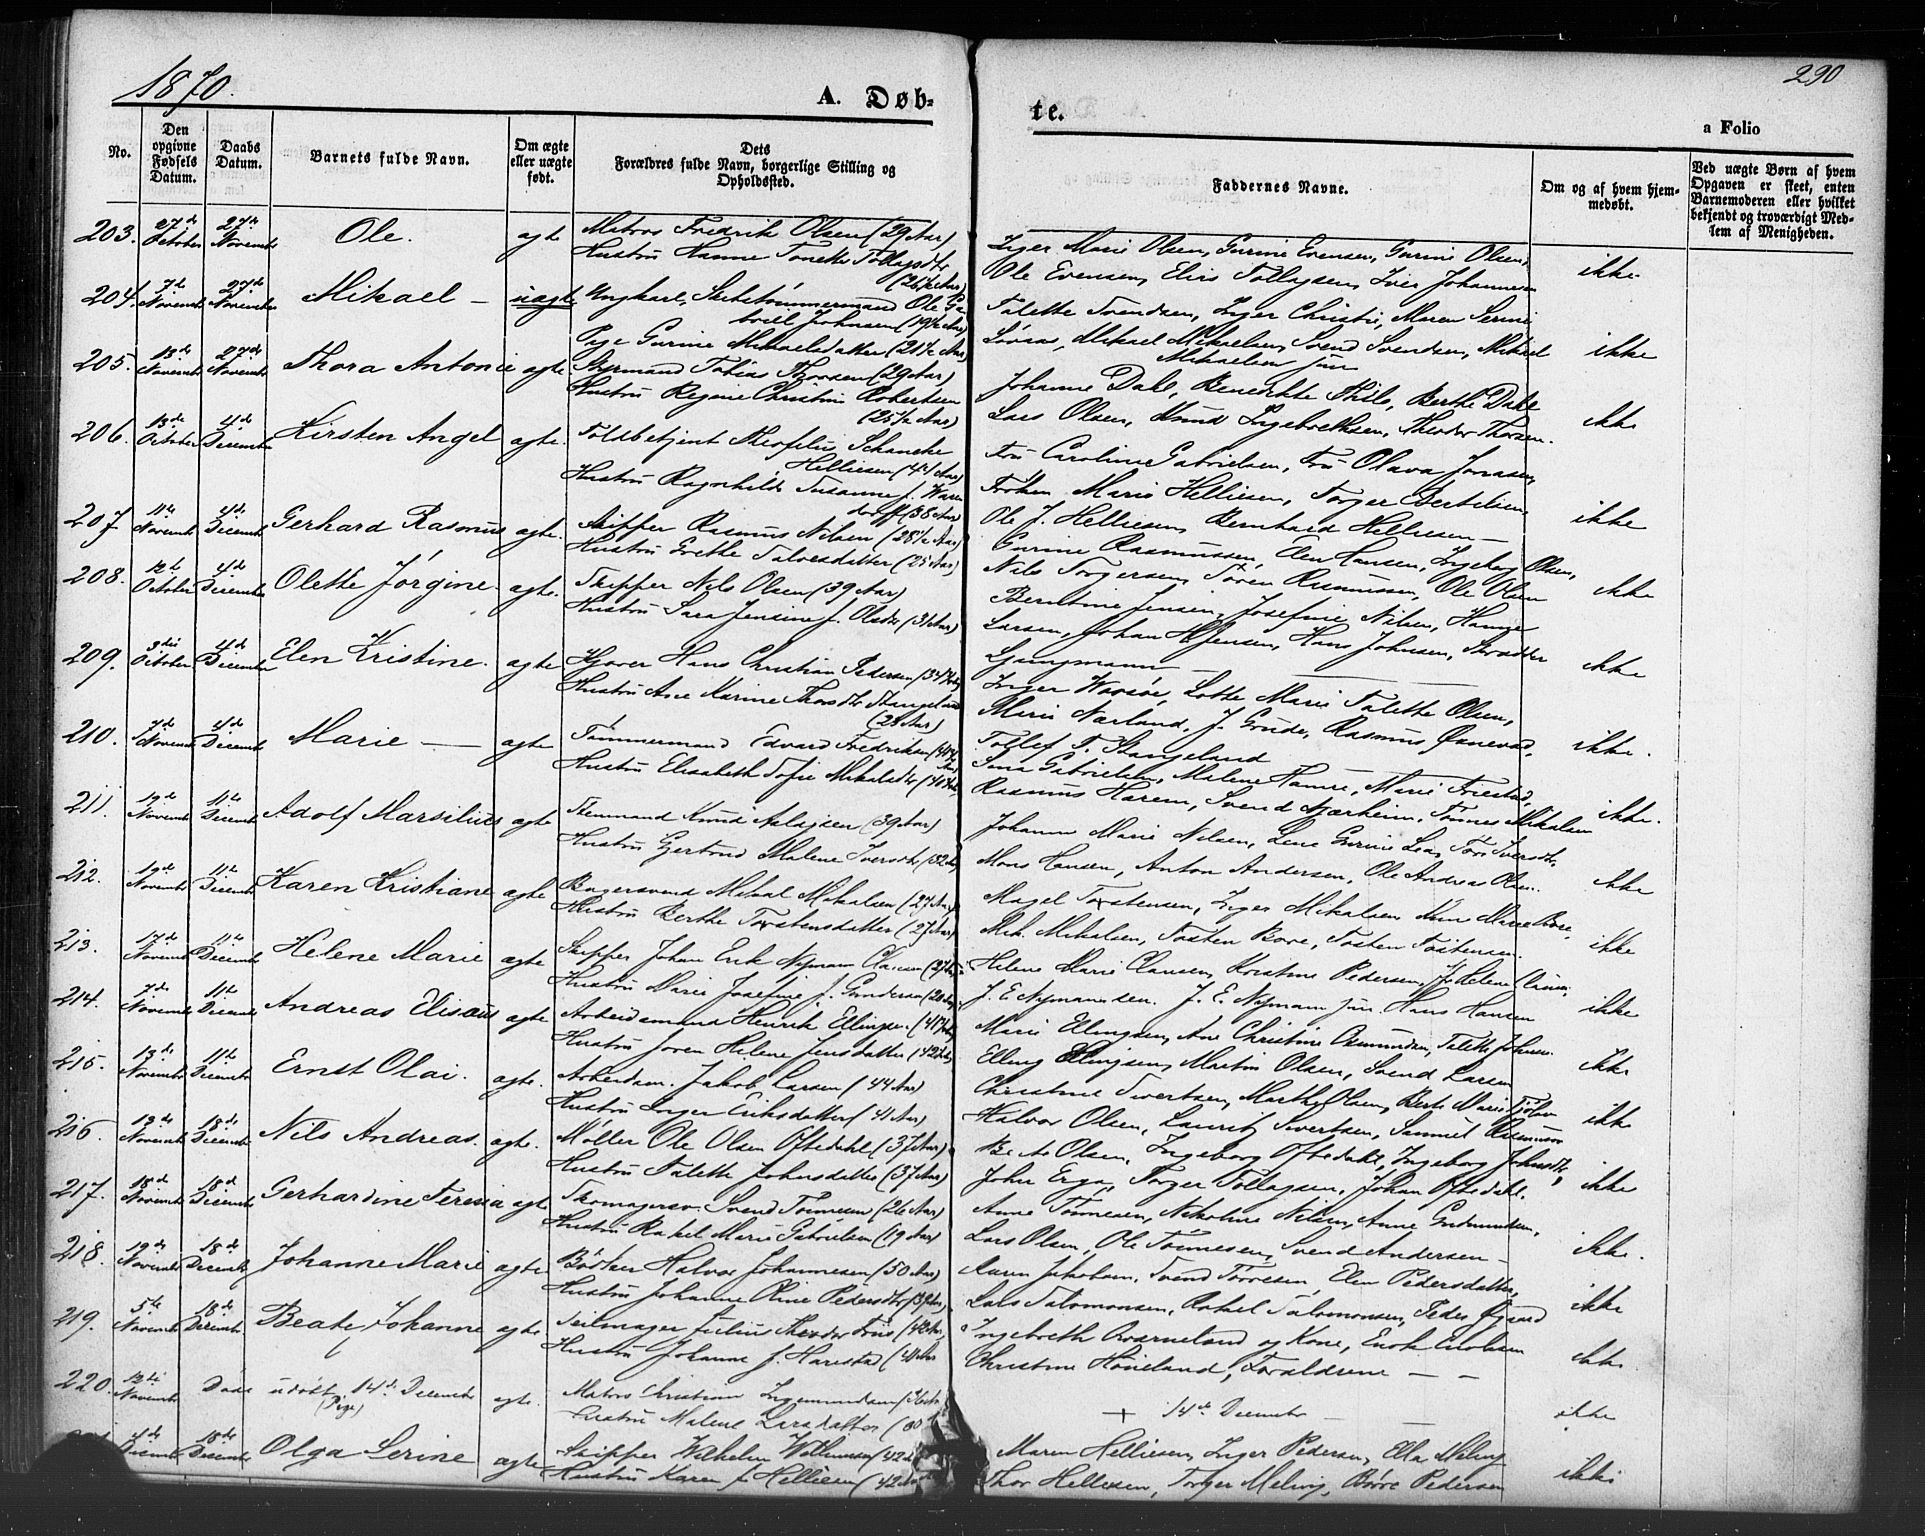 1870.
290
A. Døb-
te.
a Folio
No.
Den opgivne Fødsels Datum.
Daabs Datum.
Barnets fulde Navn.
Om ægte eller uægte født.
Dets Forældres fulde Navn, borgerlige Stilling og Opholdssted.
Faddernes Navne.
Om og af hvem hjem-medøbt.
Ved uægte Børn af hvem Opgaven er skeet, enten Barnemoderen eller hvilket bekjendt og troværdigt Med-lem af Menigheden.
203. 27de October 27de Novembr Ole. agte Matros Fredrik Olsen (29 Aar)
Hustru Hanne Tonette Tollagsdtr
Inger Marie Olsen, Gurine Evensen, Gurine Olsen,
Ole Evensen, Elias Tollagsen, Iver Johannesen
ikke
204. 7de Novembr 27de Novembr Mikael — uagte Ungkarl, Skibstømmermand Ole Ga-
briel Johnsen (19½ Aar)
Pige Gurine Mikaelsdatter (21½ Aar)
Talette Svendsen, Inger Christie, Maren Serine
Mikael Mikaelsen, Svend Svendsen, Mikael
Mikaelsen jun
ikke
205. 13de Novembr 27de Novembr Thora Antonie agte Styrmand Tobias Thorsen (29 Aar)
Hustru Regine Christine Robertsen
(25½ Aar)
Johanne Dahl, Benedikte Thilo, Berthe Dahl
Lars Olsen, Knud Ingebrethsen, Theodor Thorsen.
ikke
206. 13de October 4de Decembr Kirsten Angel agte. Toldbetjent Theofilus Schancke
Helliesen (41 Aar)
Hustru Ragnhilde Susanne f. Waren-
dorff (38 Aar)
Fru Caroline Gabrielsen, Fru Olava Jonasen,
Frøken Marie Helliesen, Torger Bertelsen
Ole J. Helliesen, Bernhard Helliesen —
ikke
207 11te Novembr 4de Decembr Gerhard Rasmus agte. Skipper Rasmus Nilsen (28½ Aar)
Hustru Grethe Salvesdatter (25 Aar)
Gurine Rasmussen, Elen Hansen, Ingeborg Olsen,
Nils Torgersen, Søren Rasmussen, Ole Olsen
ikke
208. 12te October 4de Decembr Olette Jørgine agte. Skipper Nils Olsen (39 Aar)
Hustru Sara Jensine f. Olsdtr (31 Aar)
Berntine Jensen, Josefine Nilsen, Hanne
Larsen, Johan H Jensen, Hans Johnsen, Skrædder
Ljungmann —
ikke
209. 3die October 4de Decembr Elen Kristine. agte Hans Christian Pedersen
Hustru Ane Karine Thorsdtr Stangeland
(28 Aar)
Inger Lotte Marie Talette Olsen,
Marie Nærland, J. Grude, Rasmus
Tollef T. Stangeland
ikke.
210. 7de Novembr 4de Decembr Marie — agte Tømmermand Edvard Fredriksen
Hustru Elisabeth Sofie Mikalsdtr
Sina Gabrielsen, Malene Hanne, Marie Friestad,
Rasmus Harem, Svend Njærheim, Tønnes Mikalsen
ikke.
211. 19de Novembr 11te Decembr Adolf Marsilius agte Knud Aslagsen (39 Aar)
Hustru Gjertrud Malene Iversdtr
Johanne Marie Nilsen, Lene Gurine Lea,
Mons Hansen, Anton Andersen, Ole Andreas Olsen.
ikke
212. 19de Novembr 11te Decembr Karen Kristiane agte Bagersvend Mikal Mikalsen (27 Aar)
Hustru Berthe Torstensdatter (27 Aar)
Magel Torstensen, Inger Mikalsen
Mik. Mikalsen, Tosten Bore, Tosten Tostensen.
ikke
213. 17de Novembr 11te Decembr Helene Marie agte Skipper Johan Erik Nyman Clausen
Hustru Marie Josefine f. Gundersen
Helene Marie Clausen, Kristine Pedersen,
J. E. Nyman jun. Hans Hansen
ikke
214. 7de Novembr 11te Decembr Andreas Elisæus agte Arbeidsmand Henrik Ellingsen
Hustru Joren Helene Jensdatter
Marie Ellingsen, Ane Christine Osmundsen, Talette Johnsen.
Elling Ellingsen, Martin Olsen, Svend Larsen
ikke
215. 13de Novembr 11te Decembr Ernst Olai. agte. Arbeidsm. Jakob Larsen (44 Aar)
Hustru Inger Eriksdatter (41 Aar)
Christine Sivertsen, Marthe Olsen, Berte Marie
Halvor Olsen, Laurits Sivertsen, Samuel Rasmussen
ikke
216. 13de Novembr 18de Decembr Nils Andreas. agte. Møller Ole Olsen Oftedahl (37 Aar)
Hustru Talette Johnsdatter (37 Aar)
Olsen, Ingeborg Oftedahl, Ingeborg Johnsdtr,
John Erga, Torger Tollagsen, Johan Oftedahl.
ikke
217. 18de Novembr 18de Decembr Gerhardine Teresia agte Skomagersv. Svend Tønnesen (26 Aar)
Hustru Rakel Marie Gabrielsen (19 Aar)
Anne Tønnesen, Nikoline Nilsen, Anne Gudmundsen,
Lars Olsen, Ole Tønnesen, Svend Andersen —
ikke.
218. 19de Novembr 18de Decembr Johanne Marie agte Bødker Halvor Johannesen (50 Aar)
Hustru Johanne Oline Pedersdtr
Karen Jakobsen, Svend Tørresen, Elen Pedersdatter,
Lars Salomonsen, Rakel Salomonsen, Peder
ikke
219. 5te Novembr 18de Decembr Beate Johanne agte Seilmager Julius Theodor Friis
Hustru Johanne f. Harestad
Ingebreth Qvarneland og Kone, Enok
Christine Høieland, Forældrene — —
ikke.
220. 12te Novembr Død udøbt. 14de Decembr
(Pige)
agte. Matros Christian Ingemundsen
Hustru Malene Larsdatter
+ 14de Decembr —
ikke
4de Decembr 18de Decembr Olga Serine agte Skipper Wilhelm Willemsen
Hustru Karen f. Helliesen
Maren Helliesen, Inger Pedersen, Ella Meling
Thor Helliesen, Torger Meling, Børre Pedersen
ikke